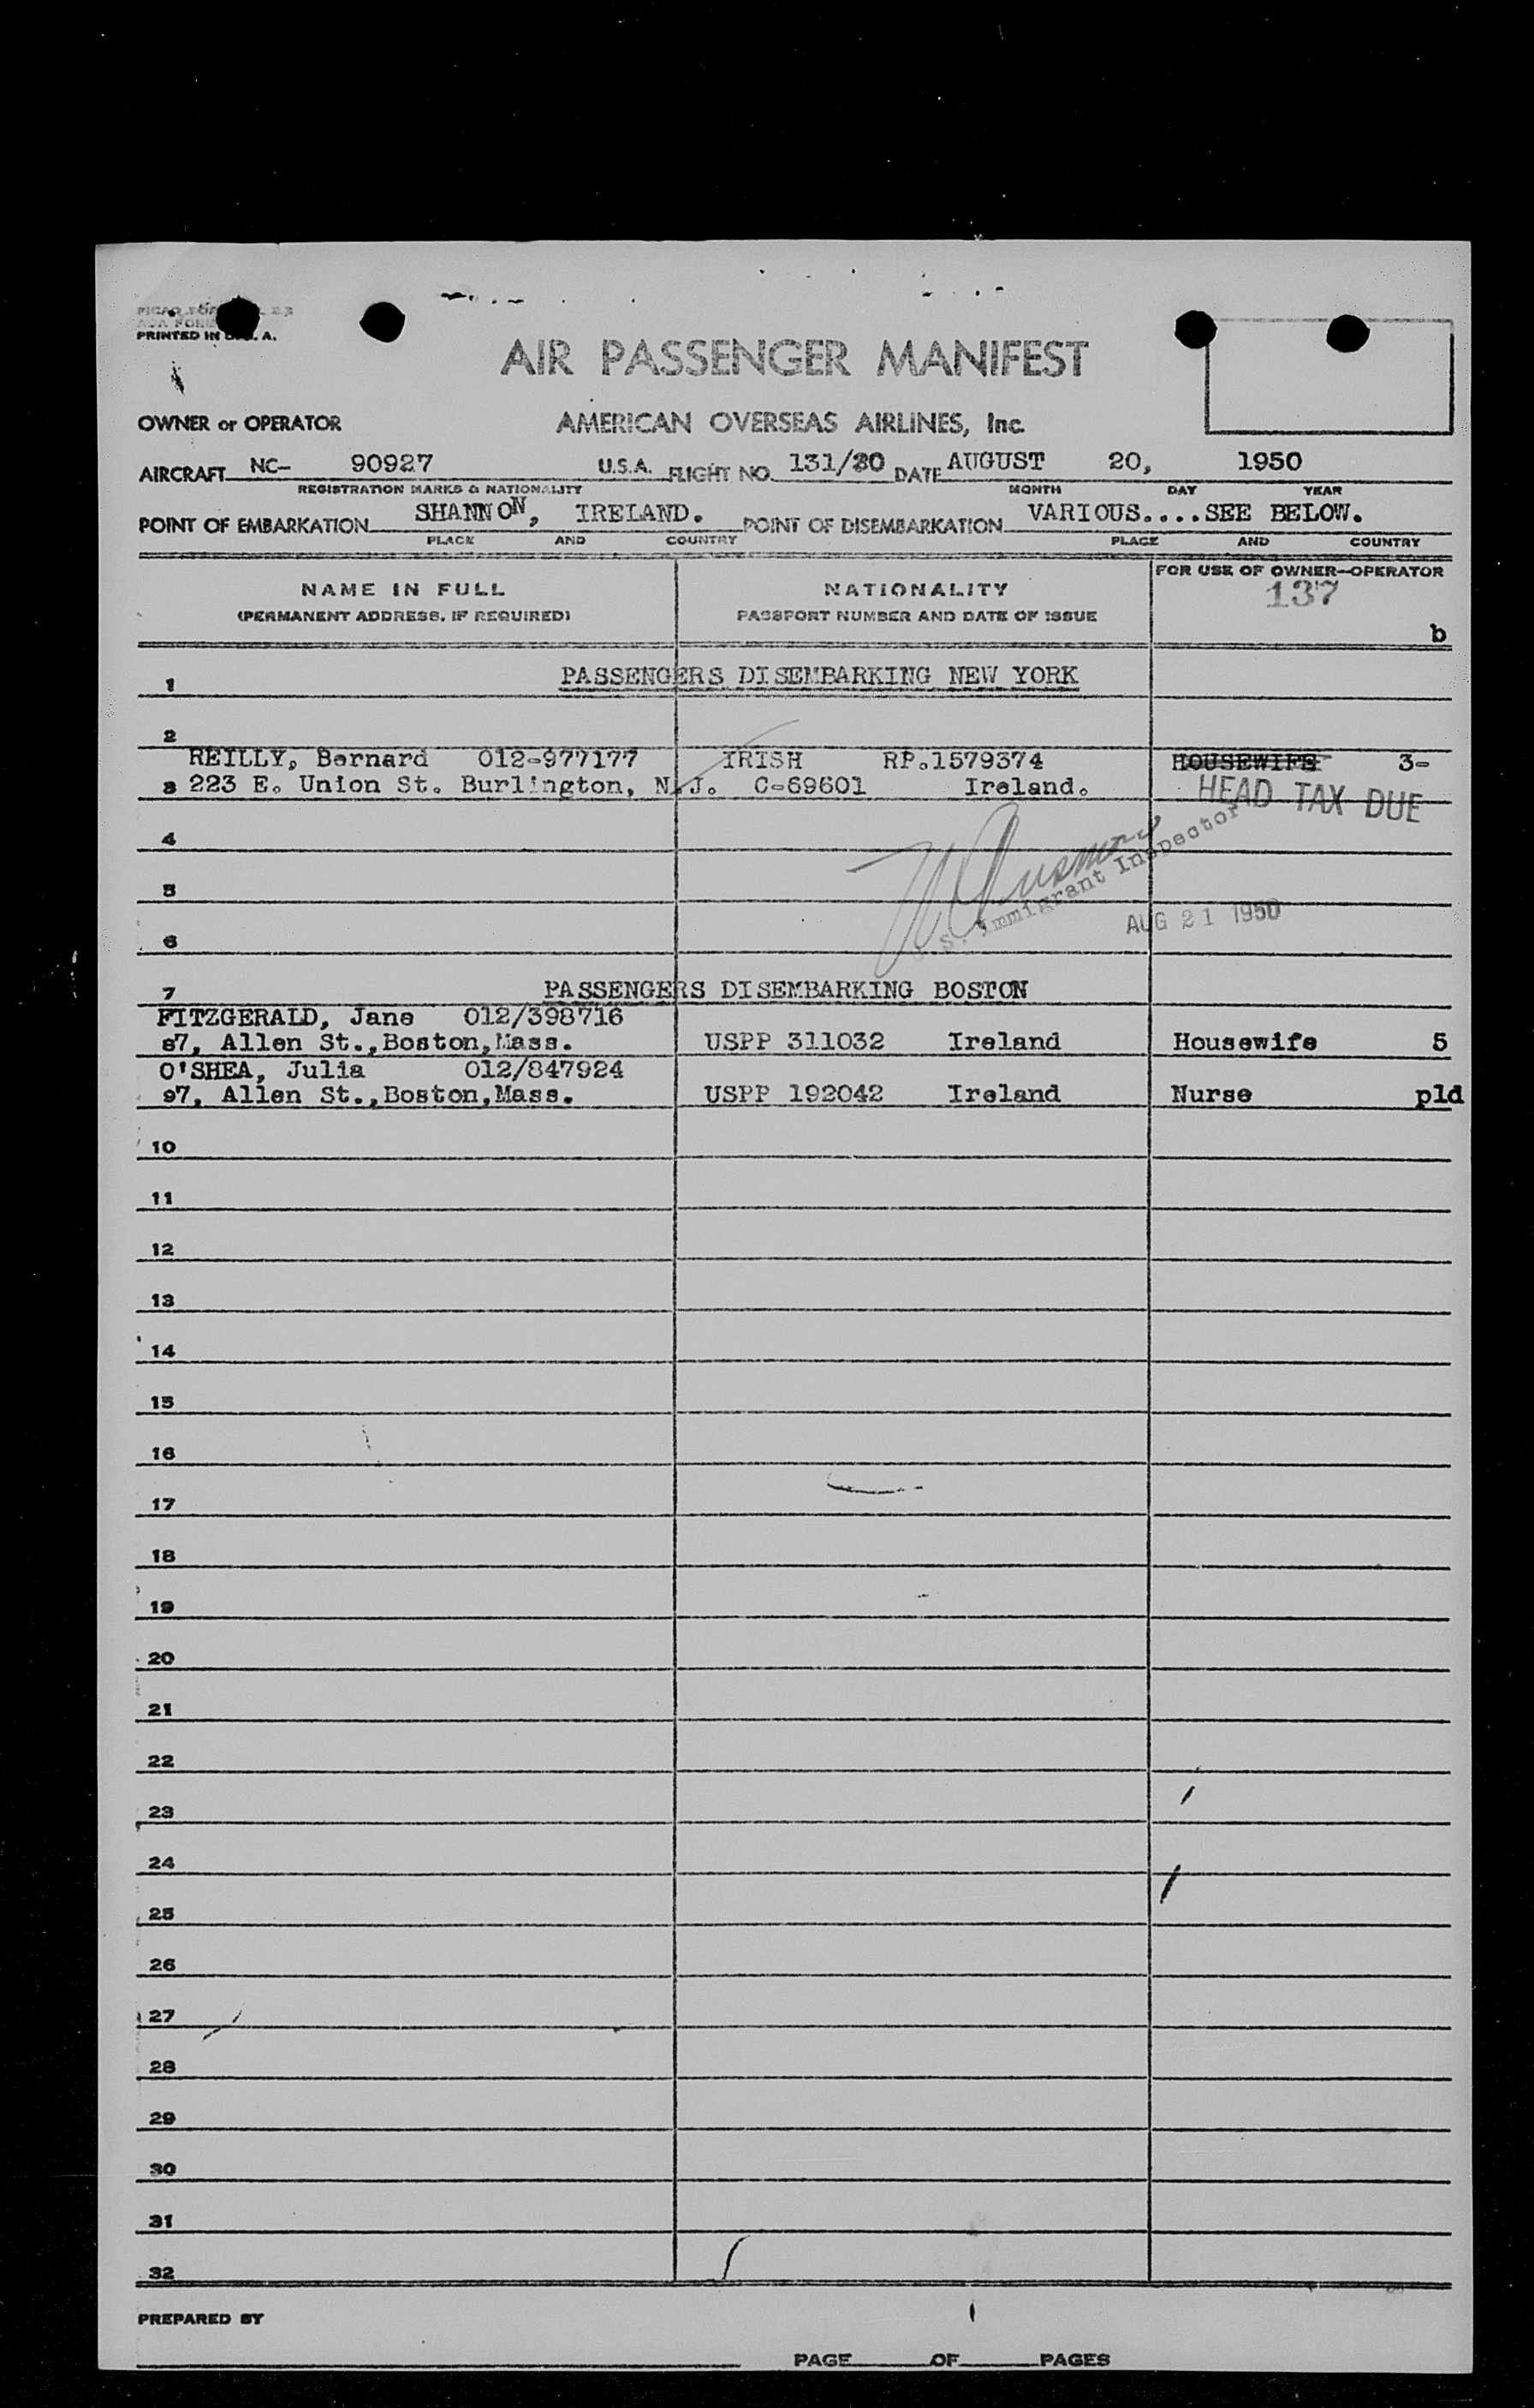 PRINTED IN U.S.A.
AIR PASSENGER MANIFEST
OWNER or OPERATOR AMERICAN OVERSEAS AIRLINES, Inc.
AIRCRAFT NC- 90927 U.S.A. FLIGHT NO. 131/20 DATE AUGUST 20, 1950
REGISTRATION MARKS & NATIONALITY MONTH DAY YEAR
POINT OF EMBARKATION SHANNON, IRELAND. POINT OF DISEMBARKATION VARIOUS....SEE BELOW.
PLACE AND COUNTRY PLACE AND COUNTRY
NAME IN FULL NATIONALITY FOR USE OF OWNER-OPERATOR
(PERMANENT ADDRESS, IF REQUIRED) PASSPORT NUMBER AND DATE OF ISSUE 137
b
1 PASSENGERS DISEMBARKING NEW YORK
2
REILLY, Bernard 012-977177 IRISH RP.1579374 HOUSEWIFE 3-
3 223 E. Union St. Burlington, N.J. C-69601 Ireland. HEAD TAX DUE
4
5 U.S. Immigrant Inspector
6 AUG 21 1950
7 PASSENGERS DISEMBARKING BOSTON
FITZGERALD, Jane 012/398716
87, Allen St., Boston, Mass. USPP 311032 Ireland Housewife 5
O'SHEA, Julia 012/847924
97, Allen St., Boston, Mass. USPP 192042 Ireland Nurse pld
10
11
12
13
14
15
16
17
18
19
20
21
22
23
24
25
26
27
28
29
30
31
32
PREPARED BY
PAGE OF PAGES